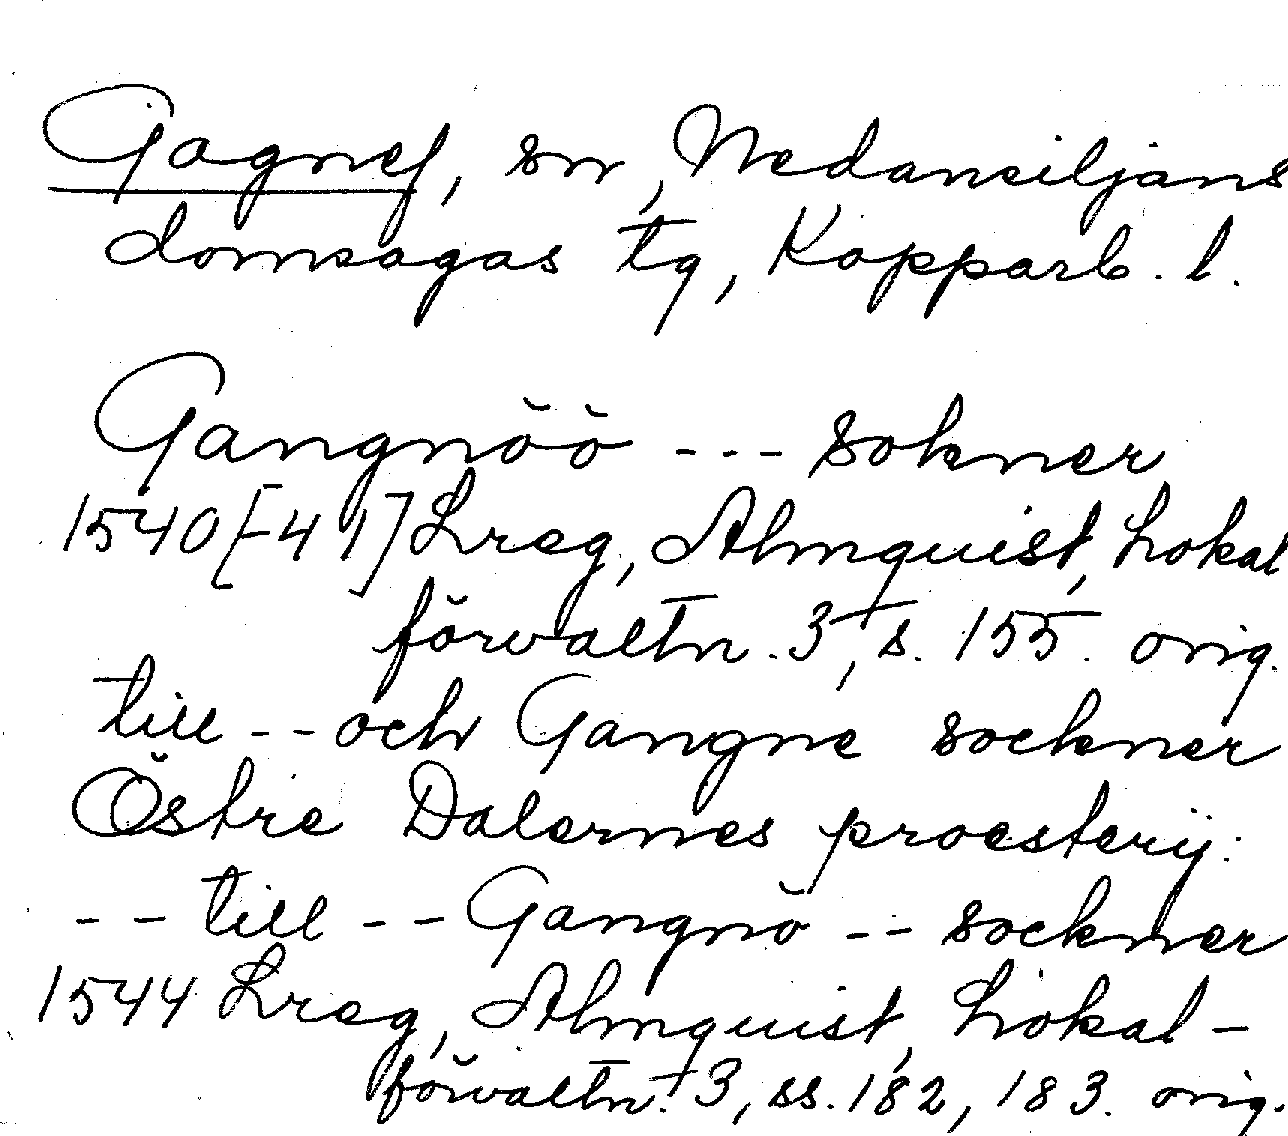 Gagnef, sn, Nedansiljans
domsagas tg, Kopparb. l.
Gangnöö --- sokner
1540[-41] Lreg, Almquist, Lokal
förvaltn. 3, s. 155. orig.
till -- och Gangne sockner
Östre Dalernes proesterij:
-- till -- Gangnö -- sockner
1544 Lreg, Almquist, Lokal-
förvaltn. 3, ss. 182, 183. orig.